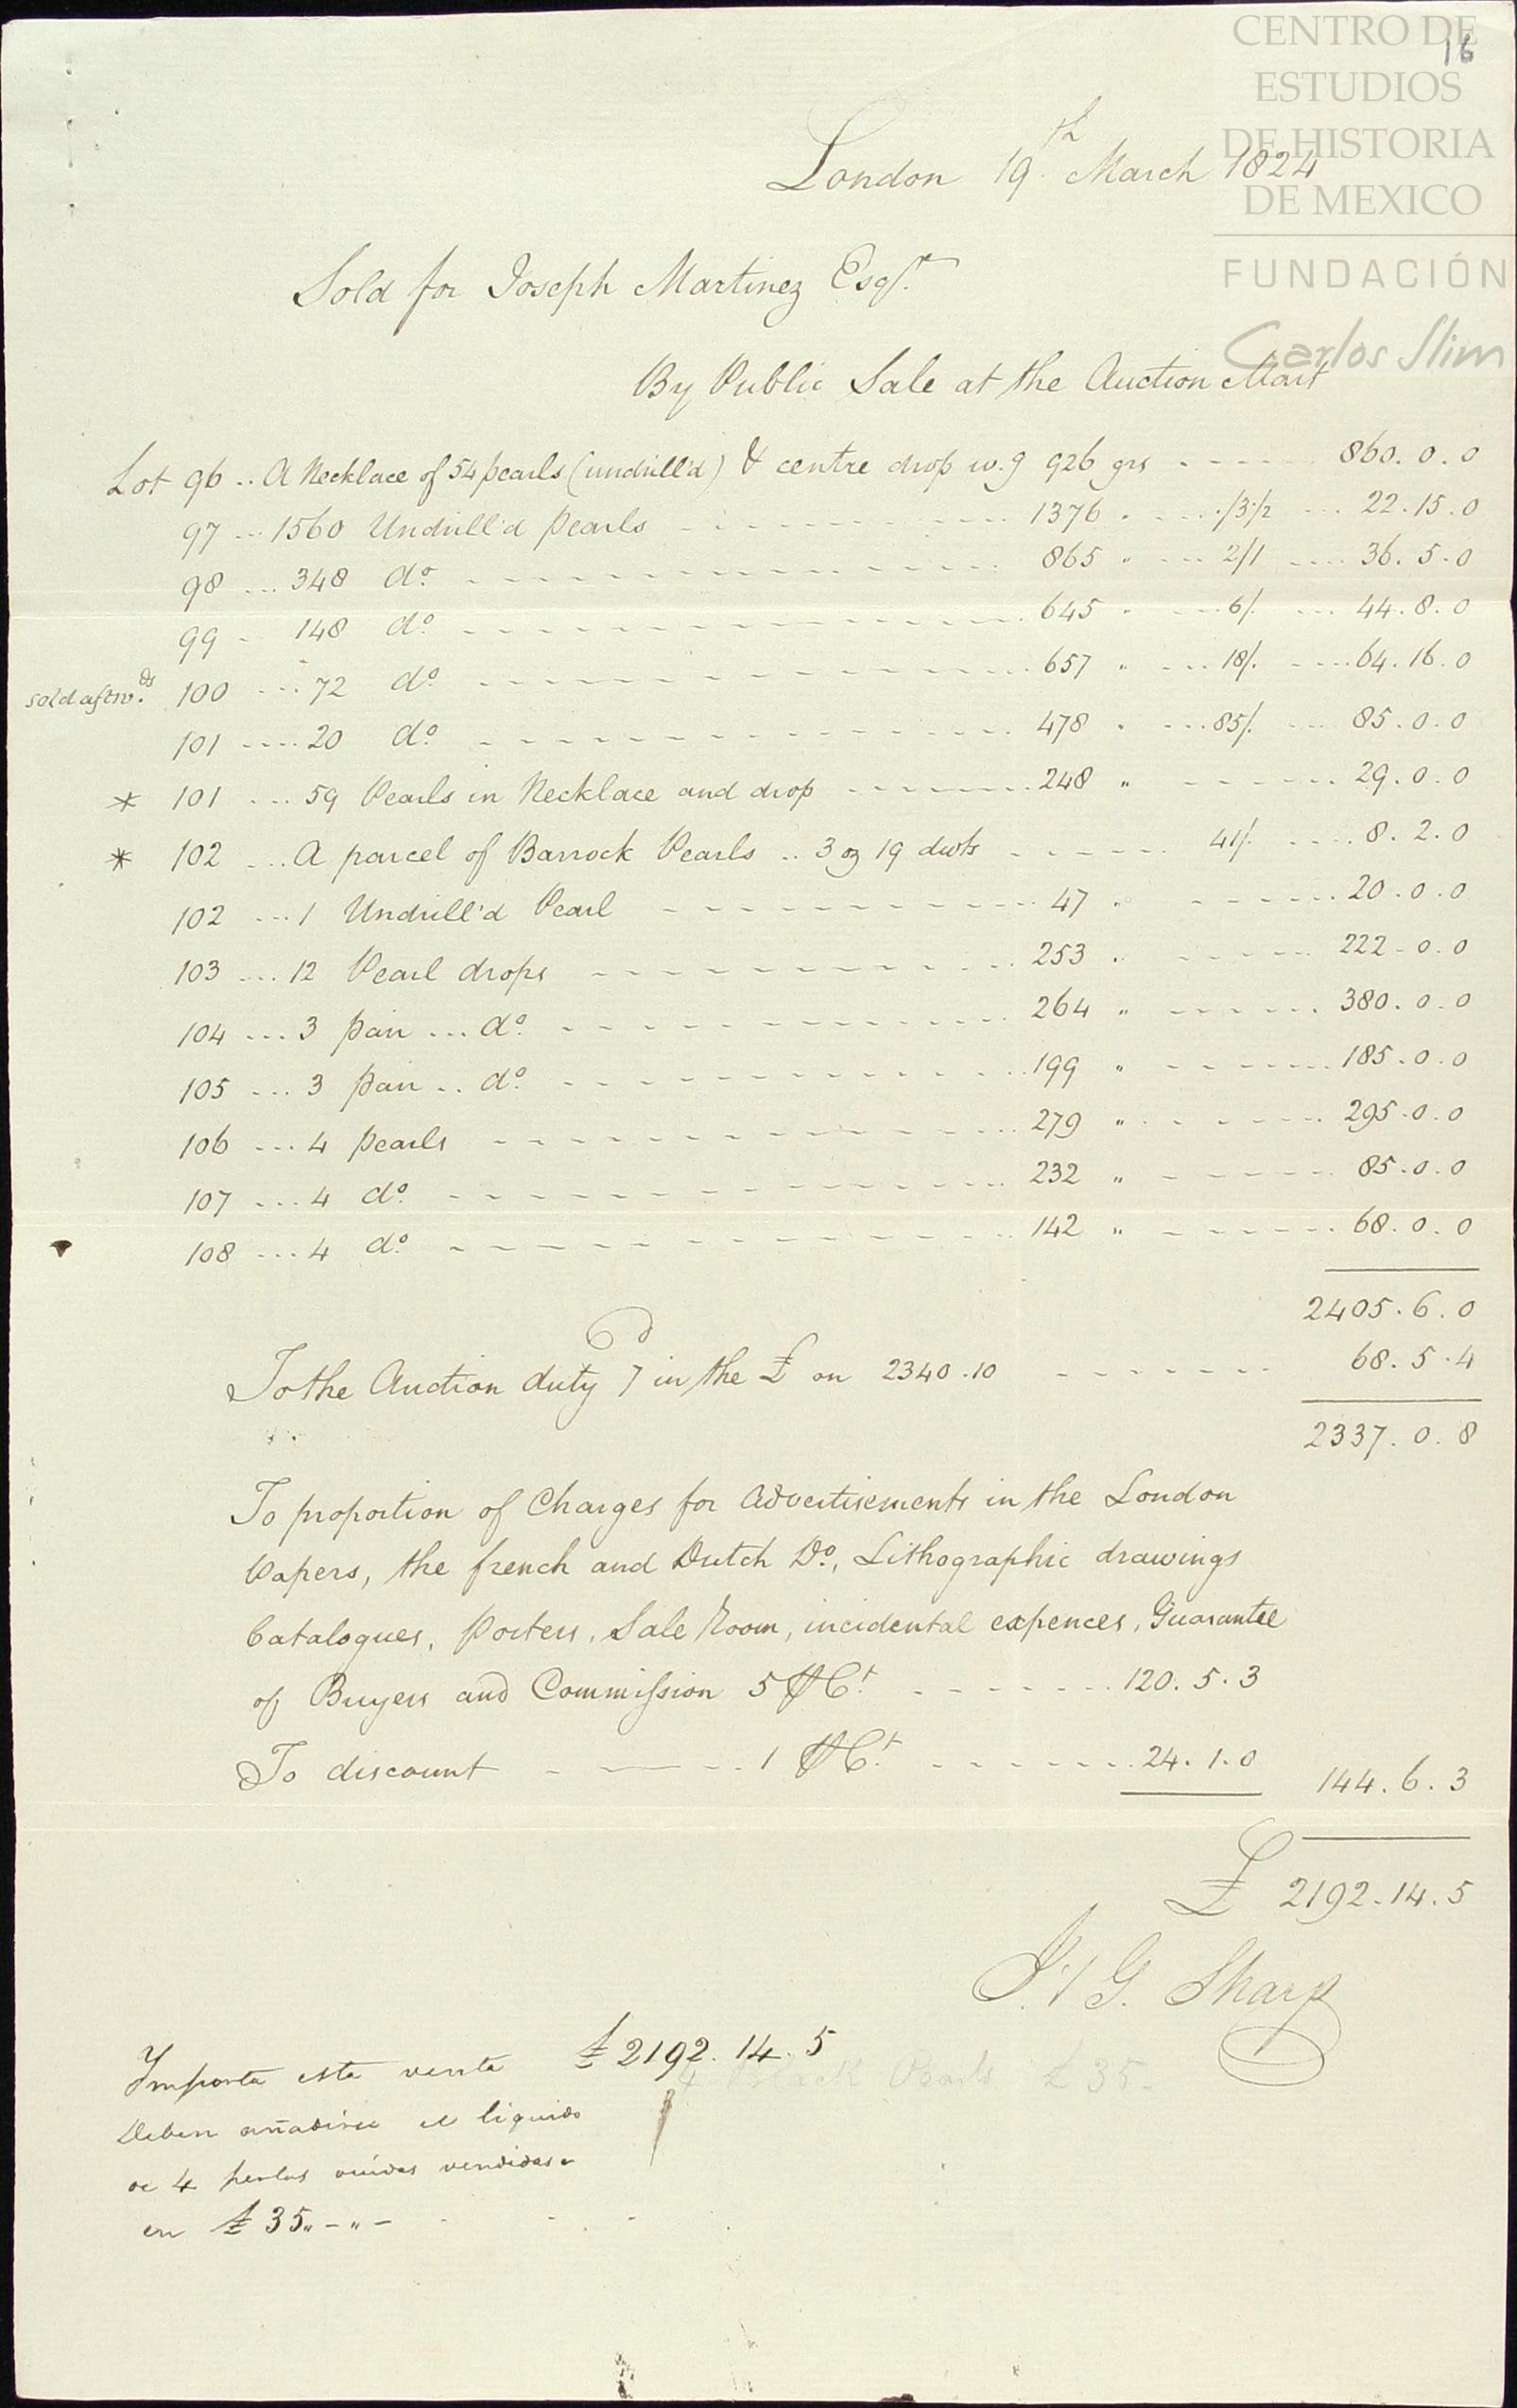 CENTRO DE
ESTUDIOS
DE HISTORIA
DE MEXICO
FUNDACIÓN
Carlos Slim
16
London 19th March 1824
Sold for Joseph Martinez Esqr.
By Public Sale at the Auction Mart
Lot 96 .. A Necklace of 54 pearls (undrill'd) & centre drop w.g 926 grs - - - - 860. 0. 0
97 ... 1560 Undrill'd pearls - - - - 1376 " - - - /3½ ... 22. 15. 0
98 ... 348 do. - - - - 865 " - - - 2/1 .... 36. 5. 0
99 .. 148 do. - - - - 645 " - - - 6/. ... 44. 8. 0
sold aftwds. 100 ... 72 do. - - - - 657 " - - - 18/. .... 64. 16. 0
101 .... 20 do. - - - - 478 " - - - 85/. ... 85. 0. 0
* 101 ... 59 Pearls in Necklace and drop - - - - 248 " - - - - 29. 0. 0
* 102 ... A parcel of Barrock Pearls .. 3 oz 19 dwts - - - - 41/. .... 8. 2. 0
102 ... 1 Undrill'd Pearl - - - - 47 " - - - - 20. 0. 0
103 ... 12 Pearl drops - - - - 253 " - - - - 222. 0. 0
104 ... 3 pair ... do. - - - - 264 " - - - - 380. 0. 0
105 ... 3 pair .. do. - - - - 199 " - - - - 185. 0. 0
106 ... 4 pearls - - - - 279 " - - - - 295. 0. 0
107 ... 4 do. - - - - 232 " - - - - 85. 0. 0
108 ... 4 do. - - - - 142 " - - - - 68. 0. 0
2405. 6. 0
To the Auction duty 7d in the £ on 2340.10 - - - - 68. 5. 4
2337. 0. 8
To proportion of Charges for Advertisements in the London
Papers, the french and Dutch Do., Lithographic drawings
Catalogues, Porters, Sale Room, incidental expences, Guarantee
of Buyers and Commission 5 ⅌ Ct. - - - - 120. 5. 3
To discount - - - - 1 ⅌ Ct. - - - - 24. 1. 0 144. 6. 3
£ 2192. 14. 5
G. Sharp
Importa esta venta £ 2192. 14. 5
4 Black Pearls £ 35.
Deben añadirse el liquido
de 4 perlas vendidas
en £ 35 " - " -